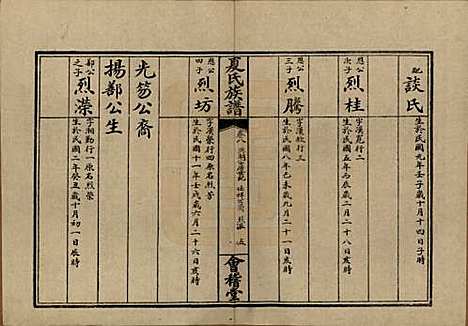 配 談氏
生於民國元年壬子十月十四日 時
應公次子 烈桂 字漢苑行二
生於民國五年丙辰歲二月二十八日亥時
應公三子 烈騰 字漢 行三
生於民國八年己未歲九月二十一日亥時
夏氏族譜
卷八
五
會稽堂
應公四子 烈坊 字漢榮行四原名烈芳
生於民國十一年壬戌歲六月二十六日亥時
光笏公裔
揚鄰公生
鄰公之子 烈濚 字湘勤行一原名烈榮
生於民國二年癸丑歲十月初一日辰時